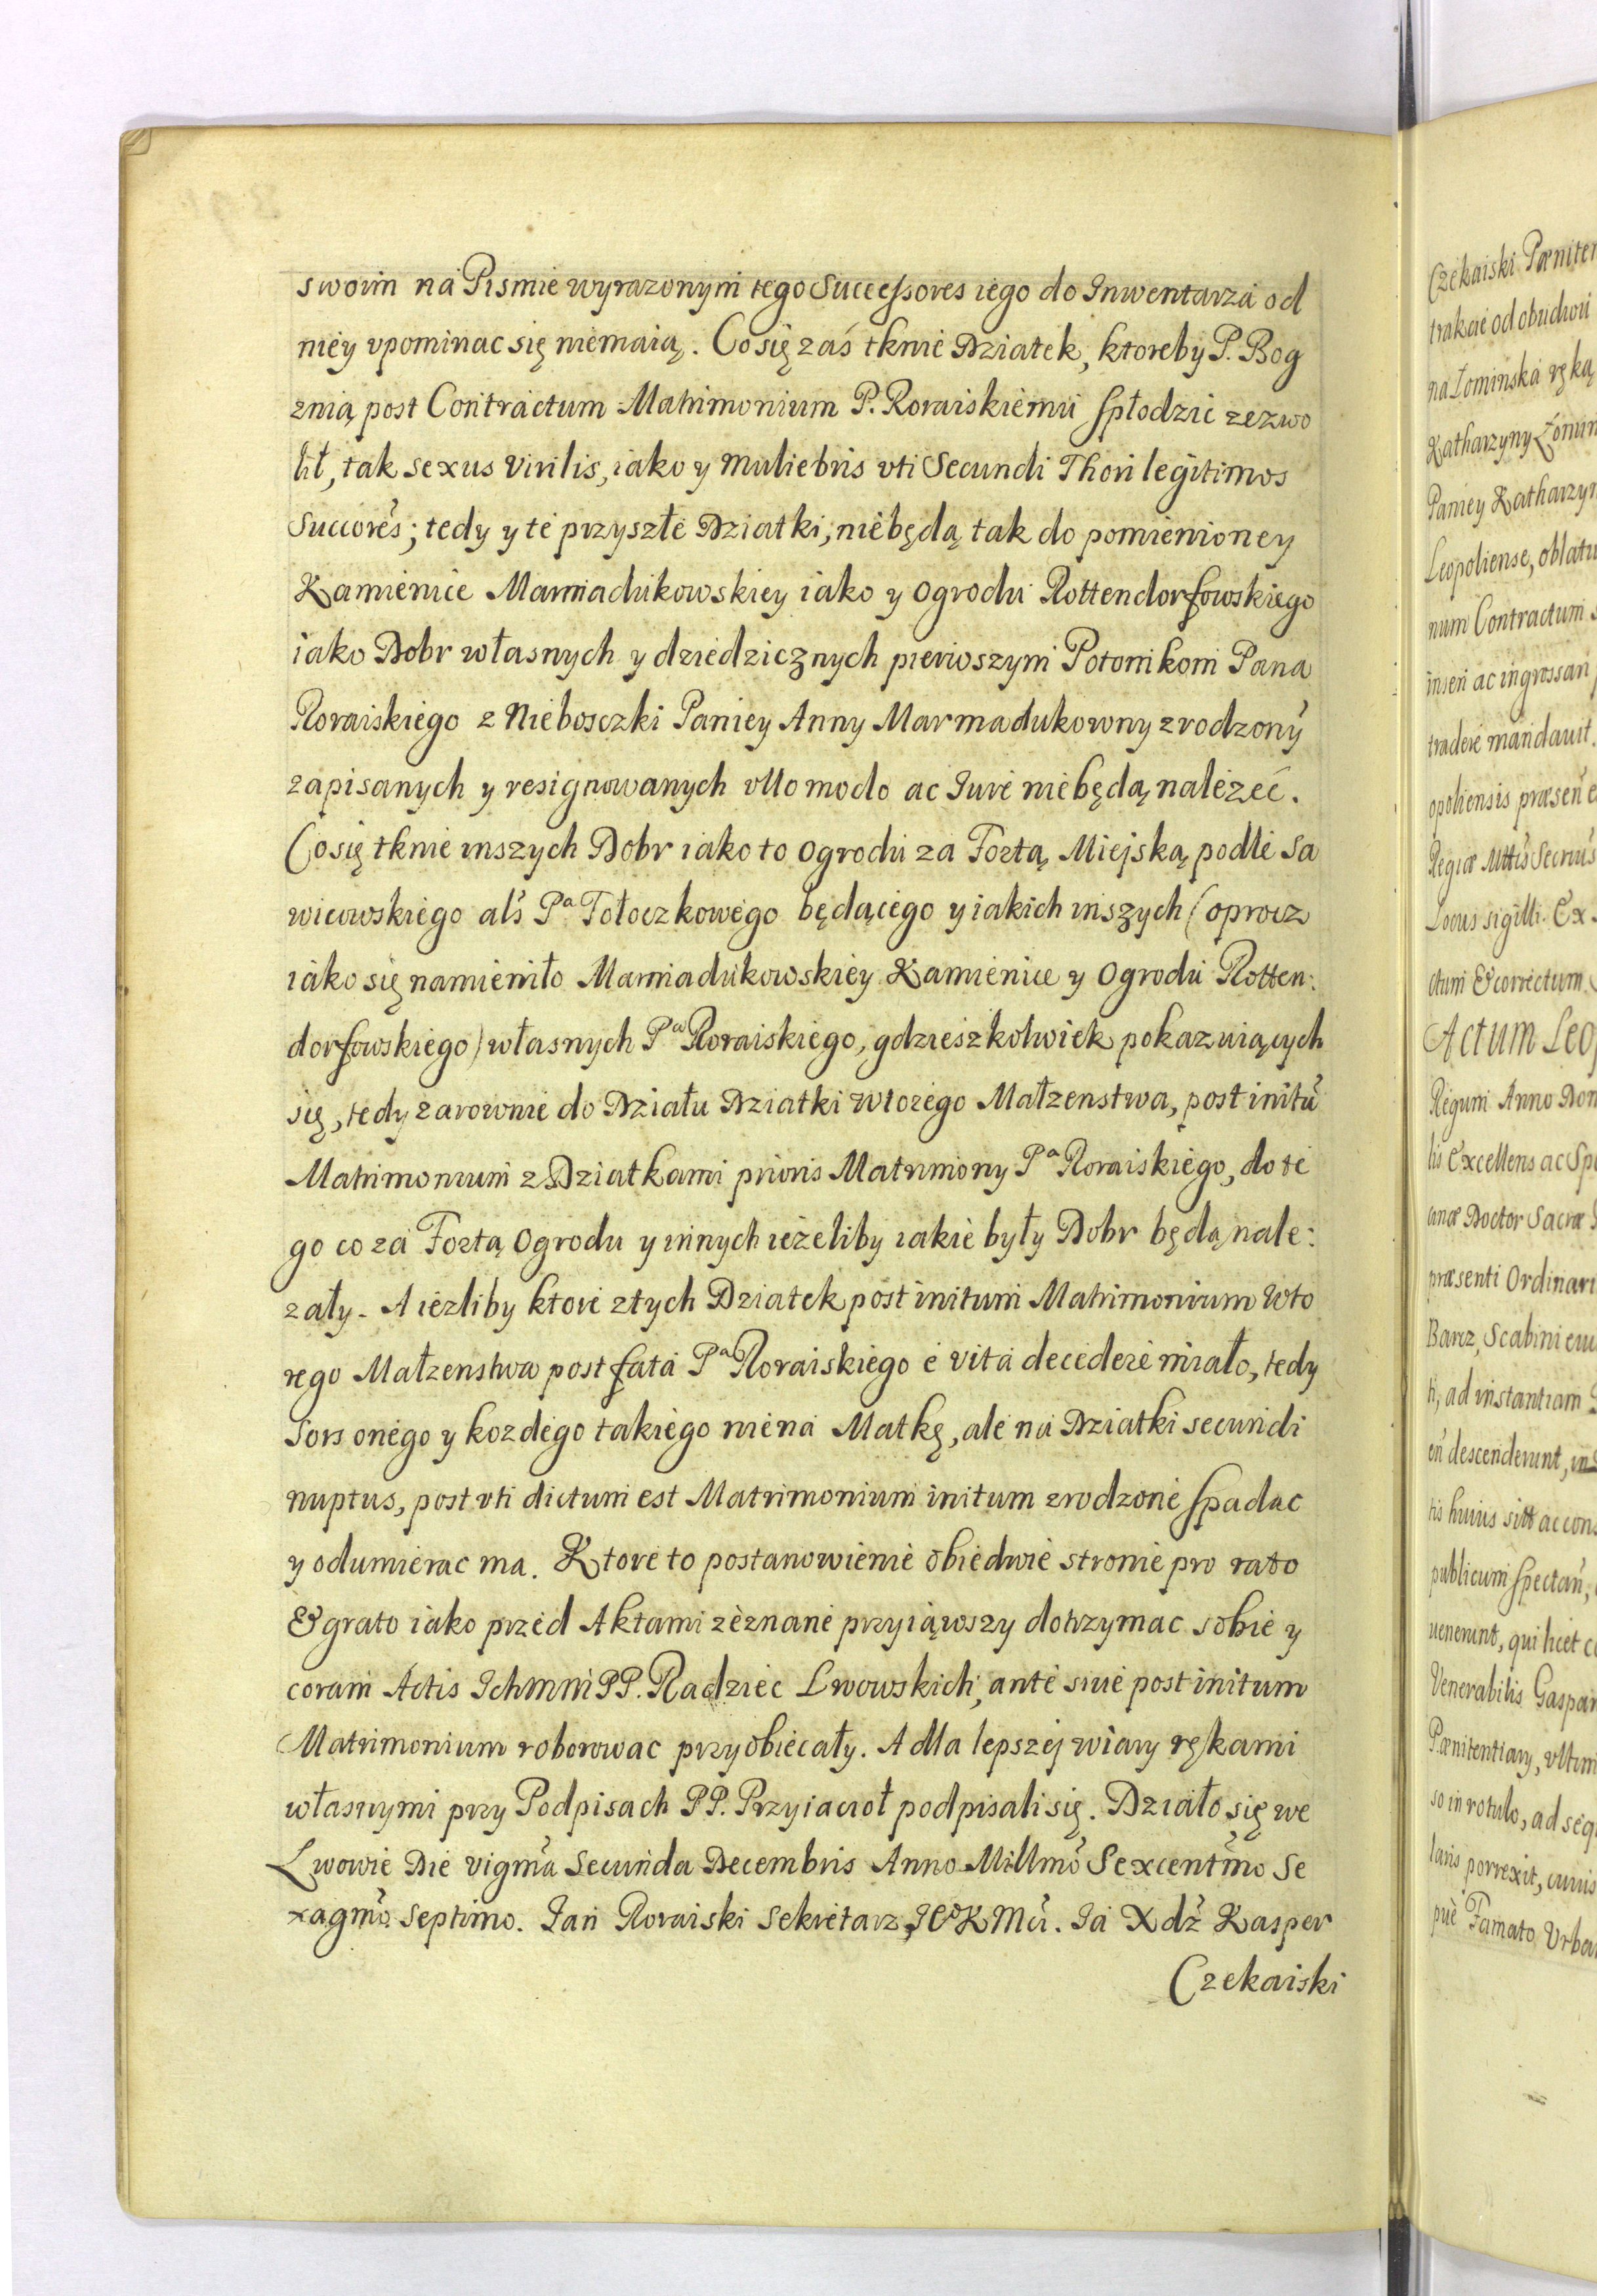 swoim na Pismie wyrazonym tego Successores iego do Inwentarza od
niey vpominac się niemaią. Co się zaś tknie Dziatek, ktoreby P. Bog
znią post Contractum Matrimonium P. Roraiskiemu spłodzic zezwo
lił, tak sexus virilis, iako y muliebris vti Secundi Thori legitimos
Succores; tedy y te przyszłe Dziatki, niebędą tak do pomienioney
Kamienice Marmadukowskiey iako y Ogrodu Rottendorfowskiego
iako Dobr własnych y dziedzicznych pierwszym Potomkom Pana
Roraiskiego z Nieboszczki Paniey Anny Marmadukowny zrodzony
zapisanych y resignowanych vllo modo ac Jure niebędą należeć.
Co się tknie inszych Dobr iako to Ogrodu za Fortą Miejską podle Sa
wicowskiego als Pa Tołoczkowego będącego y iakich inszych (oprocz
iako się namieniło Marmadukowskiey Kamienice y Ogrodu Rotten:
dorfowskiego) własnych Pa Roraiskiego, gdzieszkolwiek pokazuiących
się, tedy zarownie do Działu Dziatki wtorego Małzenstwa, post initu
Matrimonium z Dziatkami prioris Matrimony Pa Roraiskiego, do te
go co za Fortą Ogrodu y innych ieżeliby iakie były Dobr będą nale:
zały. A iezliby ktore ztych Dziatek post initum Matrimonium wto
rego Małzenstwa post fata Pa Roraiskiego e vita decedere miało, tedy
Sors onego y kozdego takiego niena Matkę, ale na Dziatki secundi
nuptus, post vti dictum est Matrimonium initum zrodzone spadac
y odumierac ma. Ktore to postanowienie obiedwie stronie pro rato
& grato iako przed Aktami zeznane przyiąwszy dotrzymac sobie y
coram Actis Ichmm PP. Radziec Lwowskich, ante siue post initum
Matrimonium roborowac przyobiecały. A dla lepszej wiary rękami
własnymi przy Podpisach PP. Przyiacioł podpisali się. Działo się we
Lwowie Die vigma Secunda Decembris Anno Millmo Sexcentmo Se
xagmo Septimo. Jan Roraiski Sekretarz JeoKMci. Ja Xdz Kasper
Czekaiski
Czekaiski
trakcie od obudwu
na Łominska ręką
Katharzyny
Paniey
Leopoliense,
num Contractum
ac ingrossari
tradere mandauit.
opoliensis
Regiæ Mttis
Locus sigilli. Ex
ctum & correctum.
Actum
Regum Anno
lis Excellens ac
Doctor Sacræ
præsenti
Barcz, Scabini
ad instantiam
descenderunt,
tis huius
publicum
uenerunt, qui licet
Venerabilis
Pænitentiary,
so in rotulo, ad
porrexit,
Famato